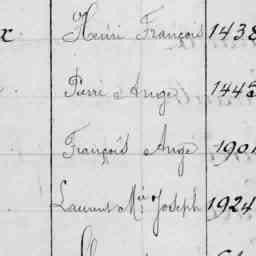 x Henri François 1438
Pierre Ange 144
François Ange 190
Laurent Mie Joseph 1924